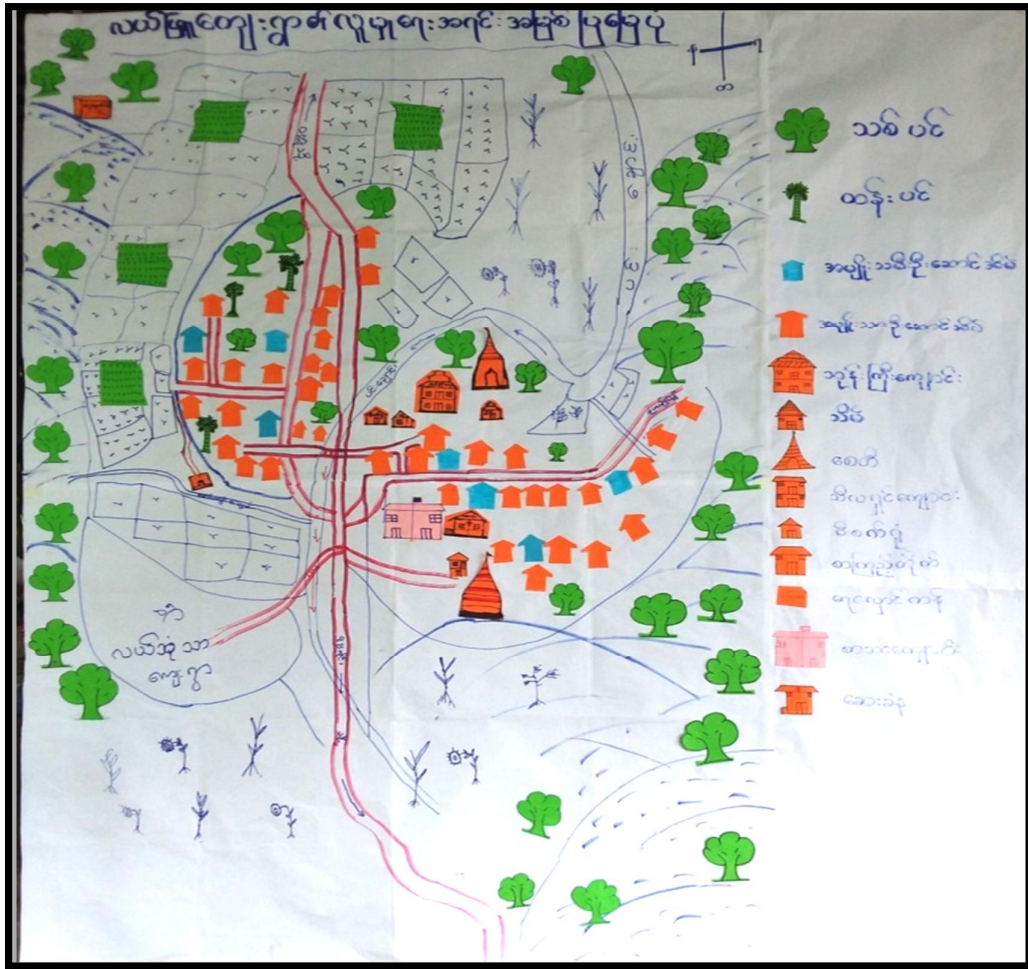 လယ်ဖြူကျေးရွာ၏လူမှုရေးအရင်းအမြစ်ပြမြေပုံ
သစ်ပင်
ထန်းပင်
အမျိုးသမီးဦးဆောင်အိမ်
အမျိုးသားဦးဆောင်အိမ်
ဘုန်းကြီးကျောင်း
အိမ်
စေတီ
သီလရှင်ကျောင်း
စာကြည့်တိုက်
ရေလှောင်ကန်
စာသင်ကျောင်း
ဆေးခန်း
လယ်အုံသာ
ကျေးရွာ